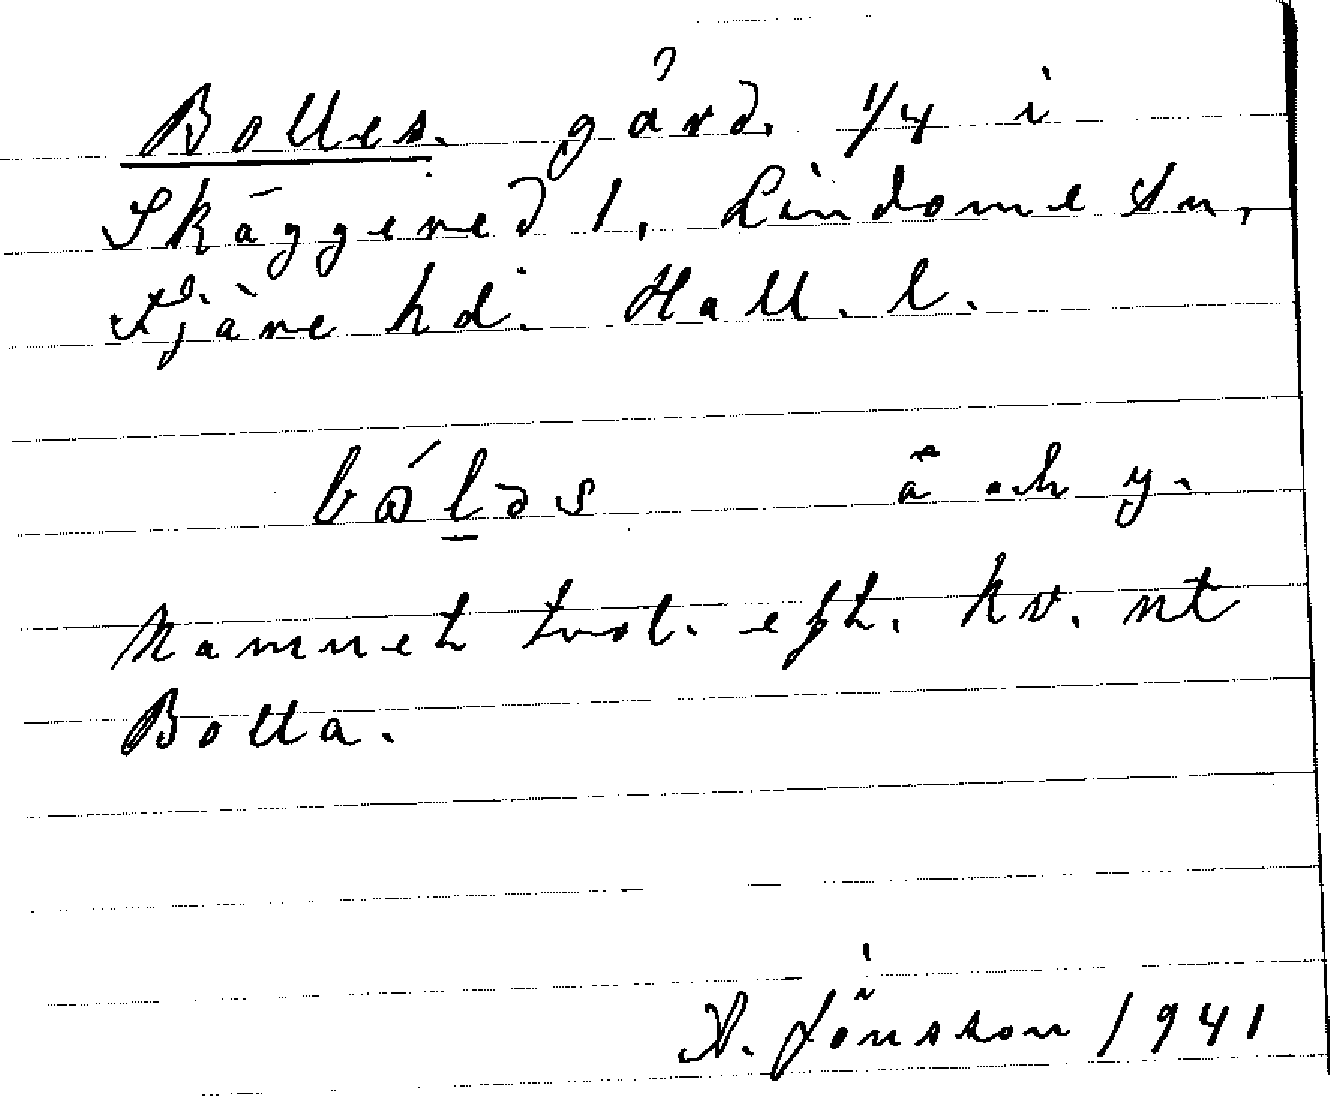 Bolles. gård. 1/4 i
Skäggered 1, Lindome sn,
Fjäre hd. Hall. l.
ä och y.
Namnet trol. eft. kv. nt
Bolla.
A. Jönsson 1941